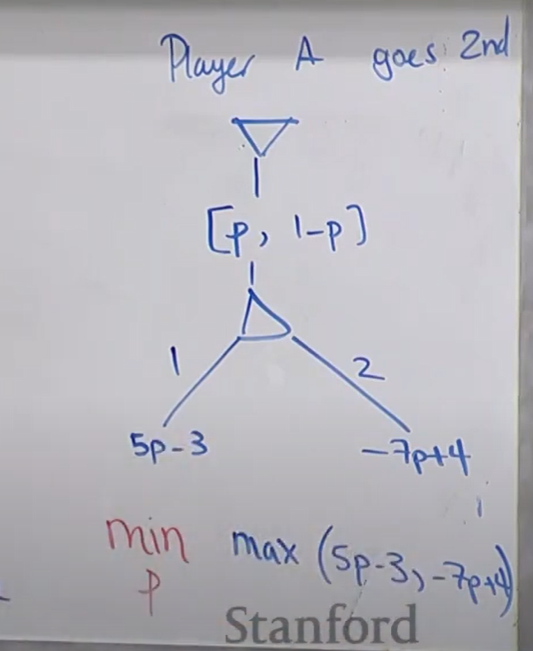 Player A goes 2nd
[p, 1-p]
1 2
5p-3 -7p+4
min max (5p-3, -7p+4)
p
Stanford